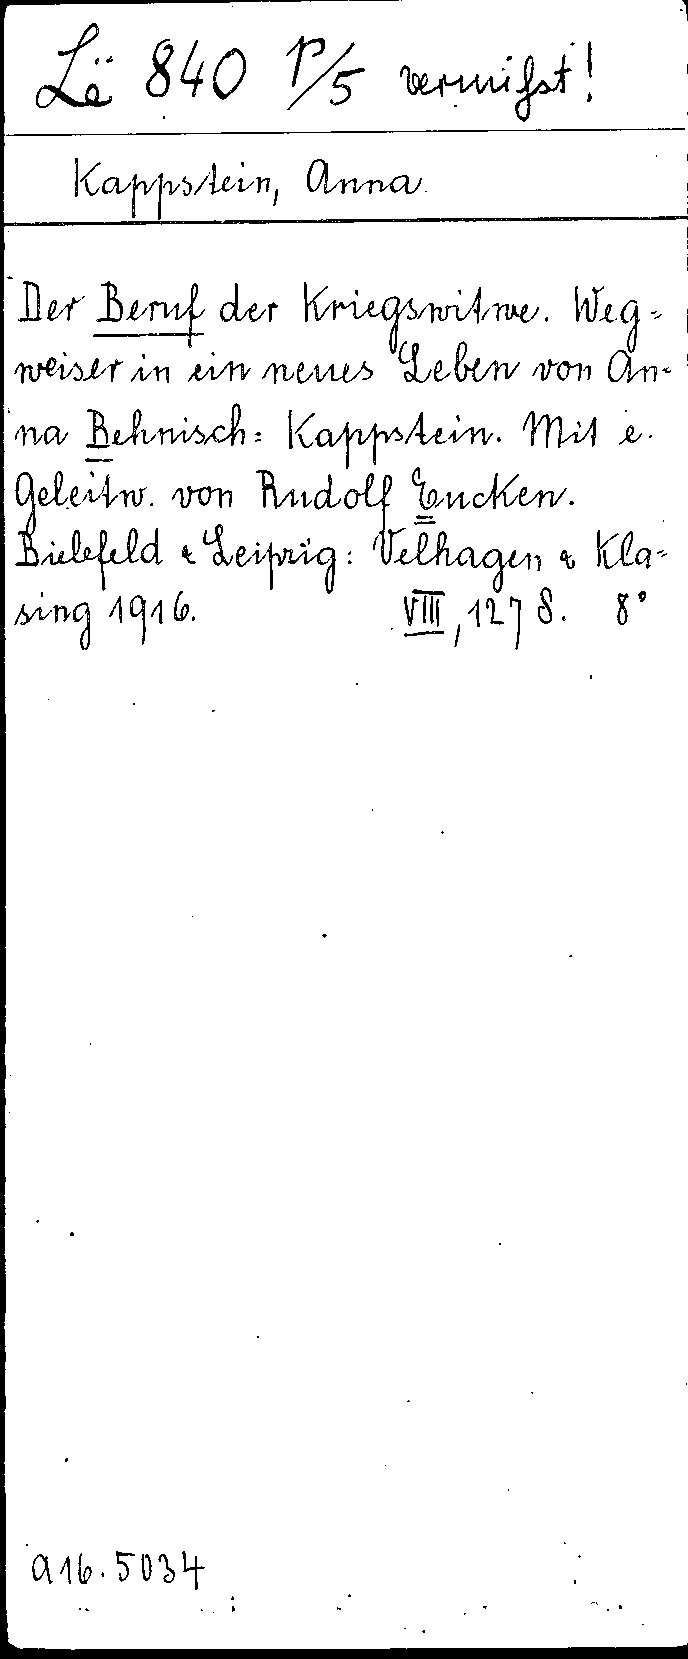 Lë 840 P/5 vermißt!
Kappstein, Anna
Der Beruf der Kriegswitwe. Weg=
weiser in ein neues Leben von An=
na Behnisch=Kappstein. Mit e.
Geleitw. von Rudolf Eucken.
Bielefeld & Leipzig: Velhagen & Kla=
sing 1916. VIII, 127 S. 8°
a16.5034